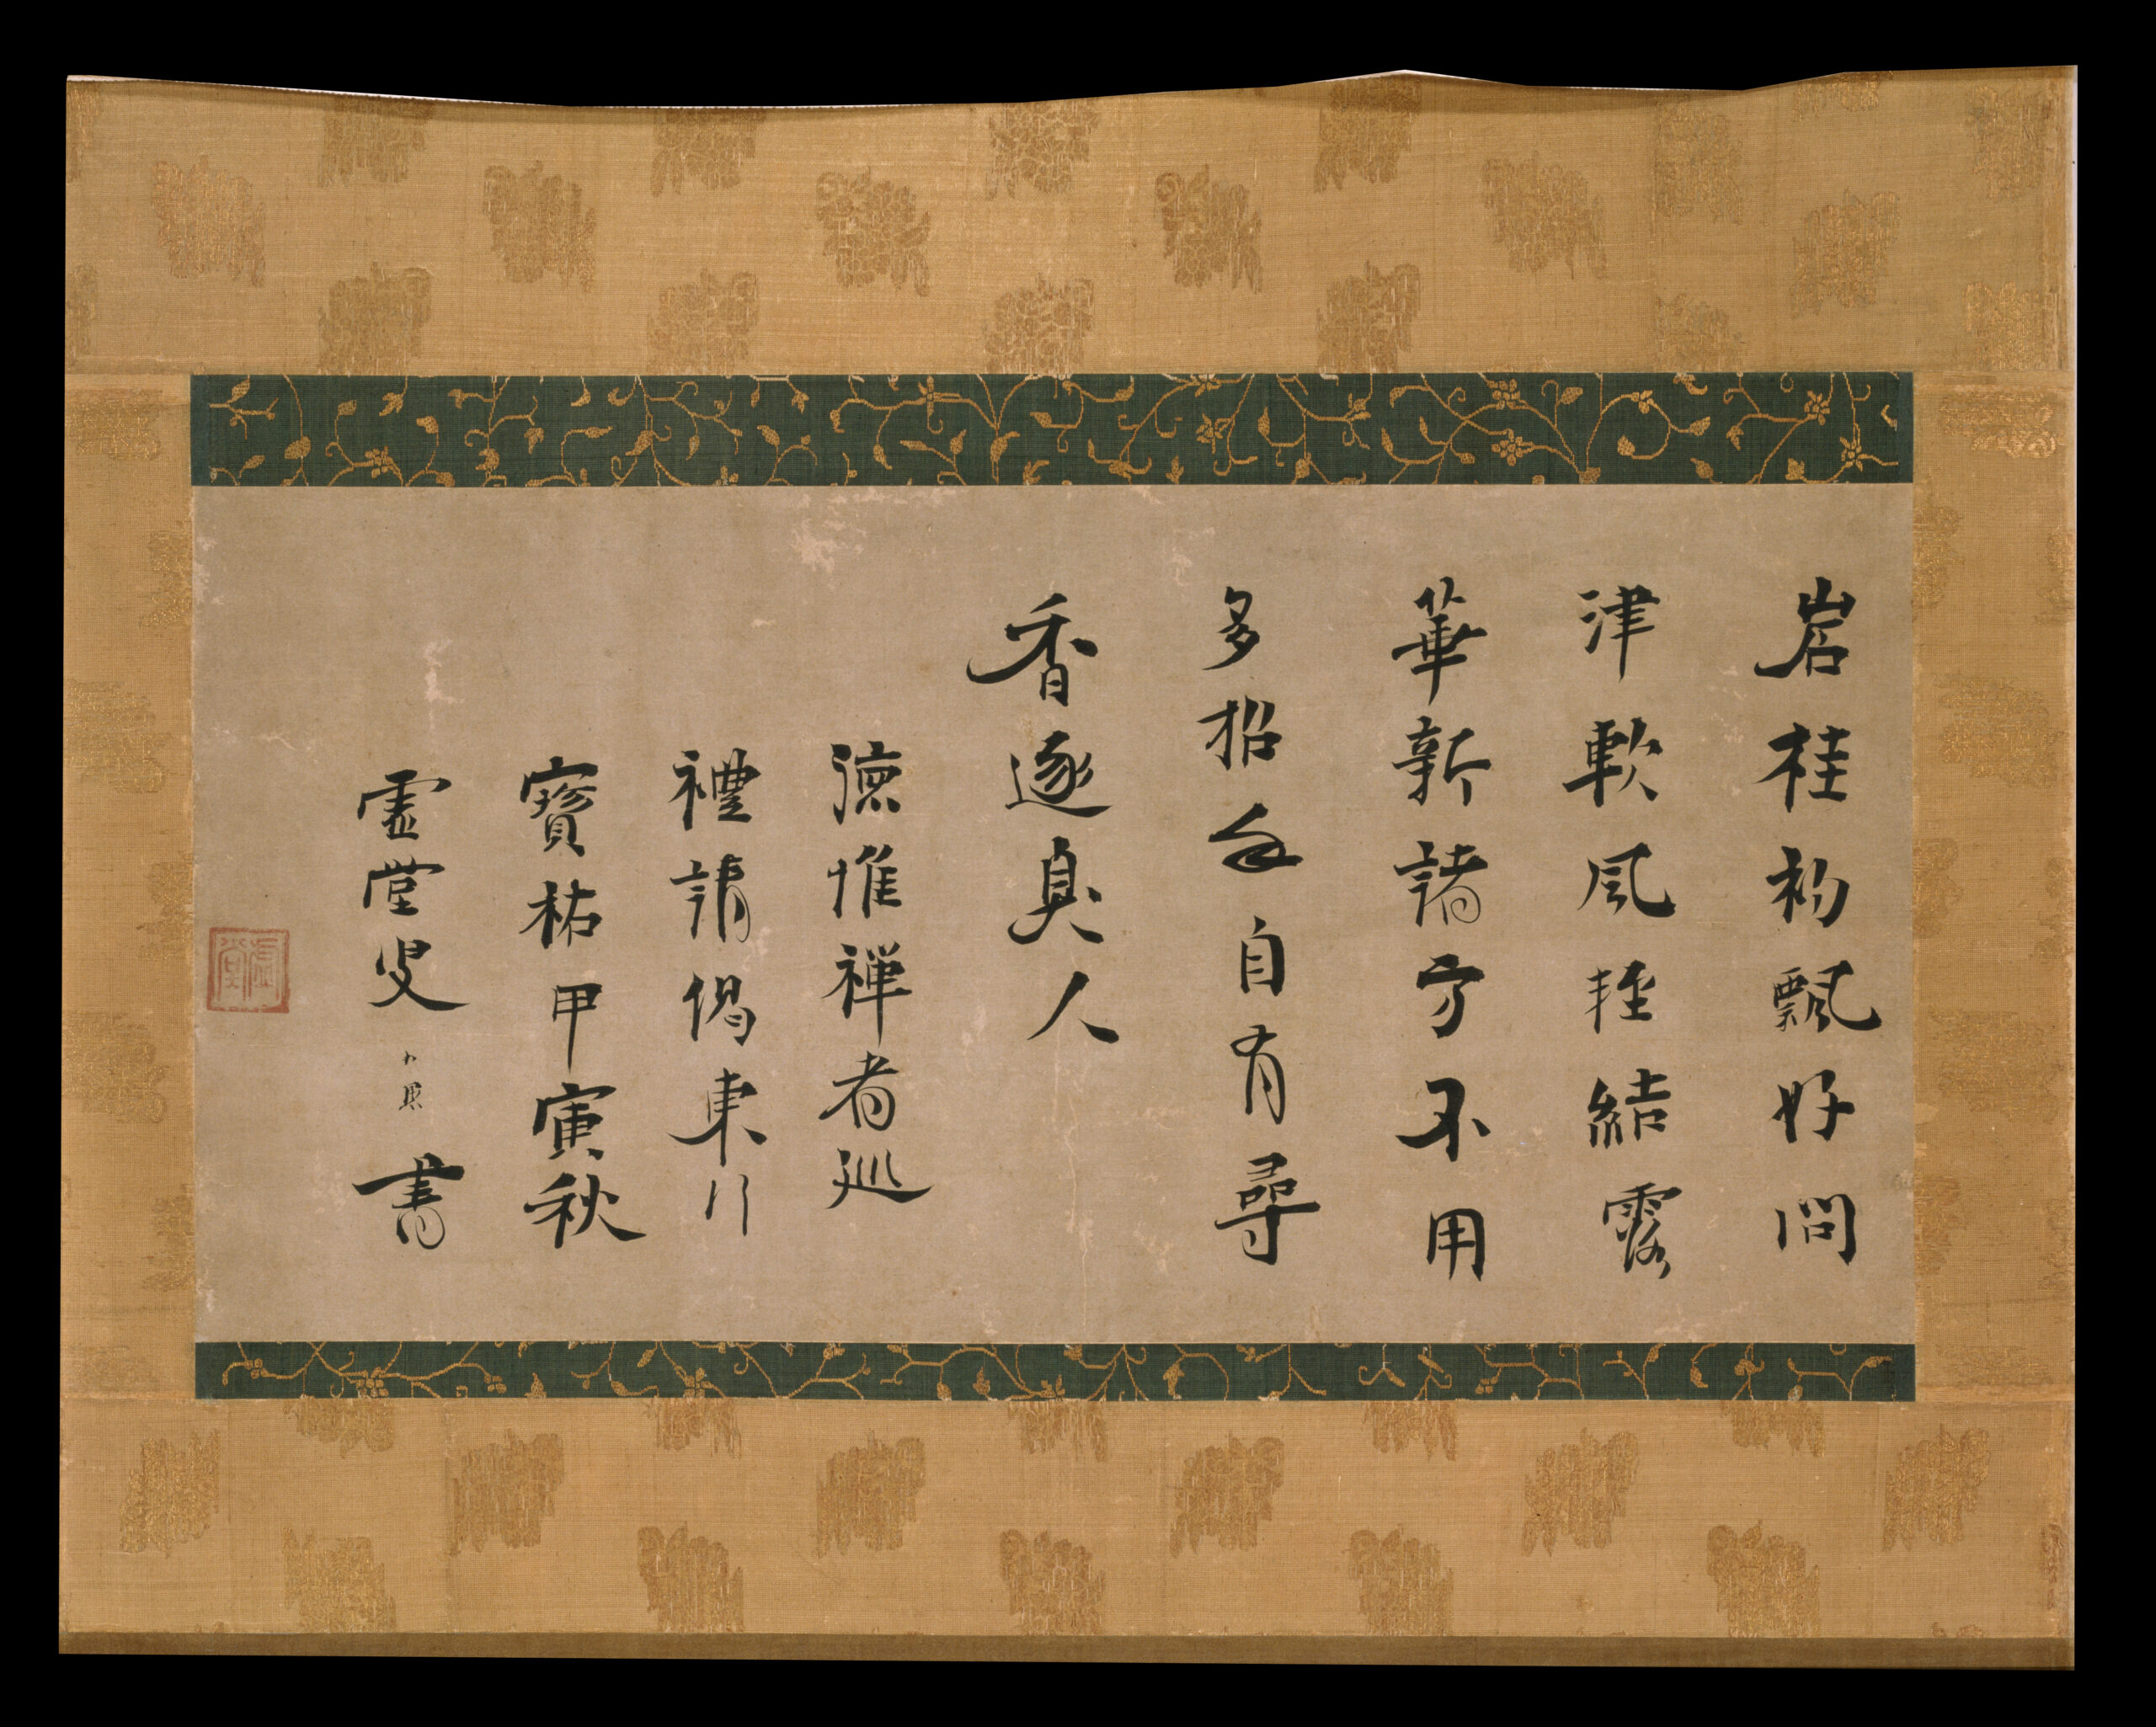 岩桂初飄好問
津軟風軽結露
華新諸方不用
多招手自有尋
香逐臭人
徳惟禅者巡
禮請偈東行
寶祐甲寅秋
虚堂叟書
虚堂